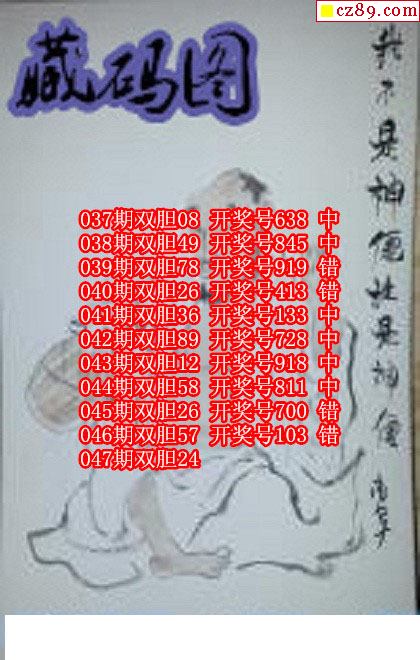 cz89.com
藏码图
037期双胆08 开奖号638 中
038期双胆49 开奖号845 中
039期双胆78 开奖号919 错
040期双胆26 开奖号413 错
041期双胆36 开奖号133 中
042期双胆89 开奖号728 中
043期双胆12 开奖号918 中
044期双胆58 开奖号811 中
045期双胆26 开奖号700 错
046期双胆57 开奖号103 错
047期双胆24
我不是神仙社是神仙